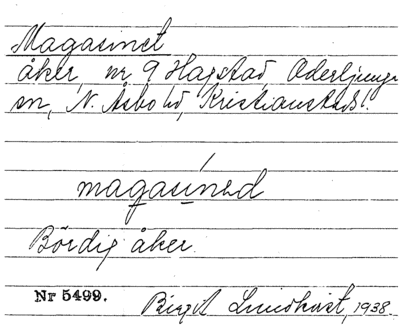 Magasinet
åker, nr 9 Hagstad, Oderljunga
sn, N. Åsbo hd, Kristianstads l.
magasínəd
Bördig åker.
Nr 5499.
Birgit Lindkvist, 1938.